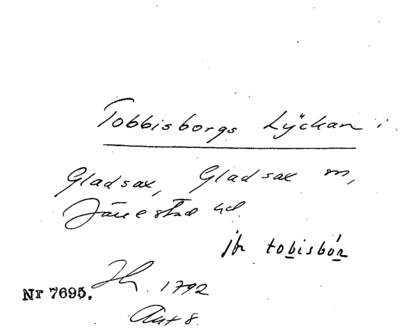 Tobbisborgs Lÿckan
Gladsax, Gladsax sn,
Järrestad hd.
jfr tobisbór
Nr 7695. 1792
Akt 8.